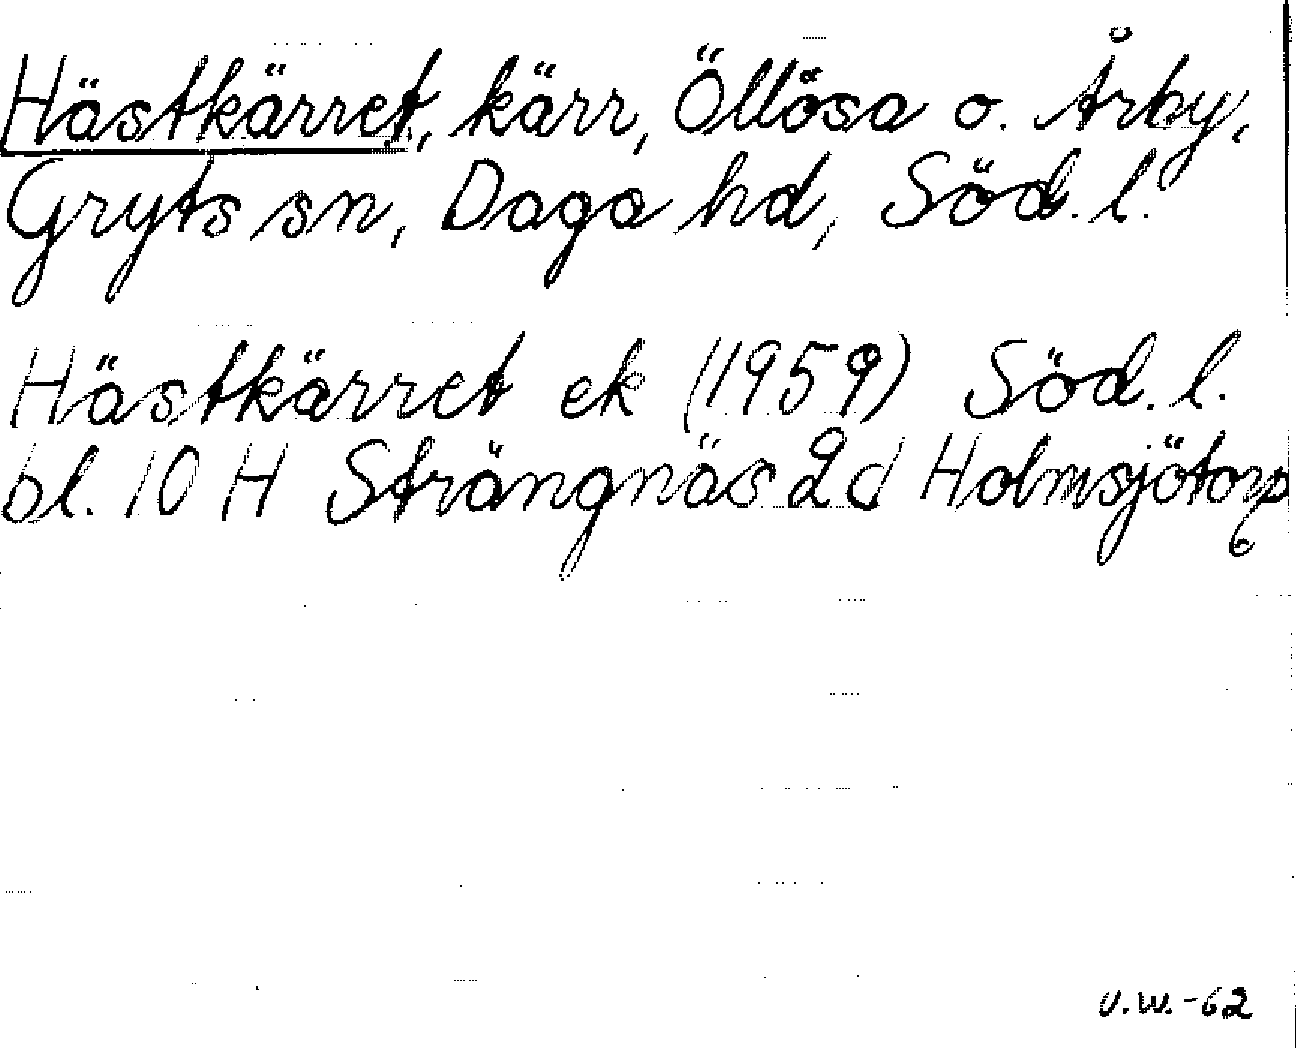 Hästkärret, kärr, Öllösa o. Årby,
Gryts sn, Daga hd, Söd. l.
Hästkärret ek (1959) Söd. l.
bl. 10 H Strängnäs 2 d Holmsjötorp
U.W.-62